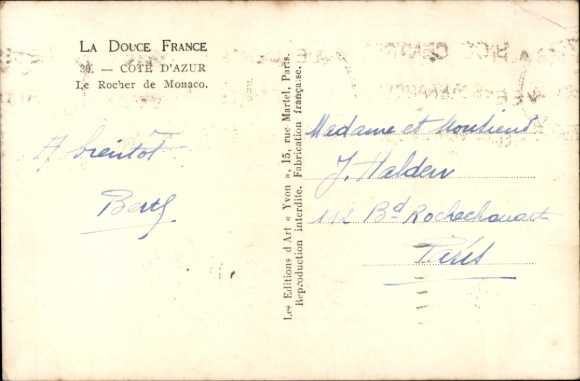 LA DOUCE FRANCE
30. — COTE D'AZUR
Le Rocher de Monaco.
A bientôt
Les Editions d'Art « Yvon », 15, rue Martel, Paris.
Reproduction interdite. Fabrication française.
Madame et Monsieur
J. Halden
112 Bd Rochechouart
Paris